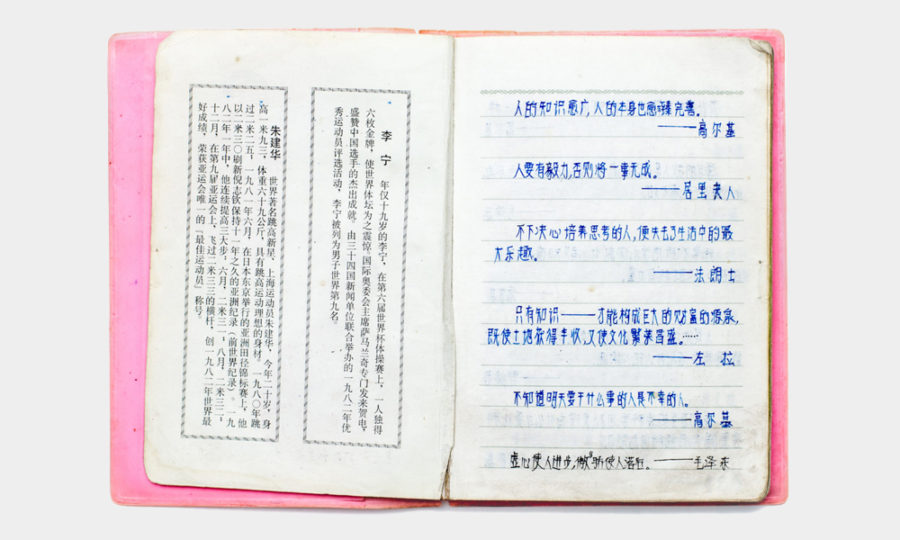 李 宁 年仅十九岁的李宁，在第六届世界杯体操赛上，一人独得
六枚金牌，使世界体坛为之震惊。国际奥委会主席萨马兰奇专门发来贺电，
盛赞中国选手的杰出成就。由三十四国新闻单位联合举办的一九八二年优
秀运动员评选活动，李宁被列为男子世界第九名。
朱建华 世界著名跳高新星、上海运动员朱建华，今年二十岁，身
高一米九三，体重六十九公斤，具有跳高运动理想的身材。一九八〇年跳
过二米二五，一九八一年六月，在日本东京举行的亚洲田径锦标赛上，他
以二米三〇刷新倪志钦保持十一年之久的亚洲纪录（前世界纪录）。一九
八二年一年中，他连续提高三大步：六月，二米三一；八月，二米三二；
十二月，在第九届亚运会上，飞过二米三三的横杆，创一九八二年世界最
好成绩，荣获亚运会唯一的“最佳运动员”称号。
人的知识愈广，人的本身也愈臻完善。
——高尔基
人要有毅力，否则将一事无成。
——居里夫人
不下决心培养思考的人，便失去了生活中的最
大乐趣。
——法朗士
只有知识——才能构成巨大的财富的源泉，
既使土地获得丰收，又使文化繁荣昌盛。……
——左 拉
不知道明天要干什么事的人是不幸的人。
——高尔基
虚心使人进步，骄傲使人落后。——毛泽东